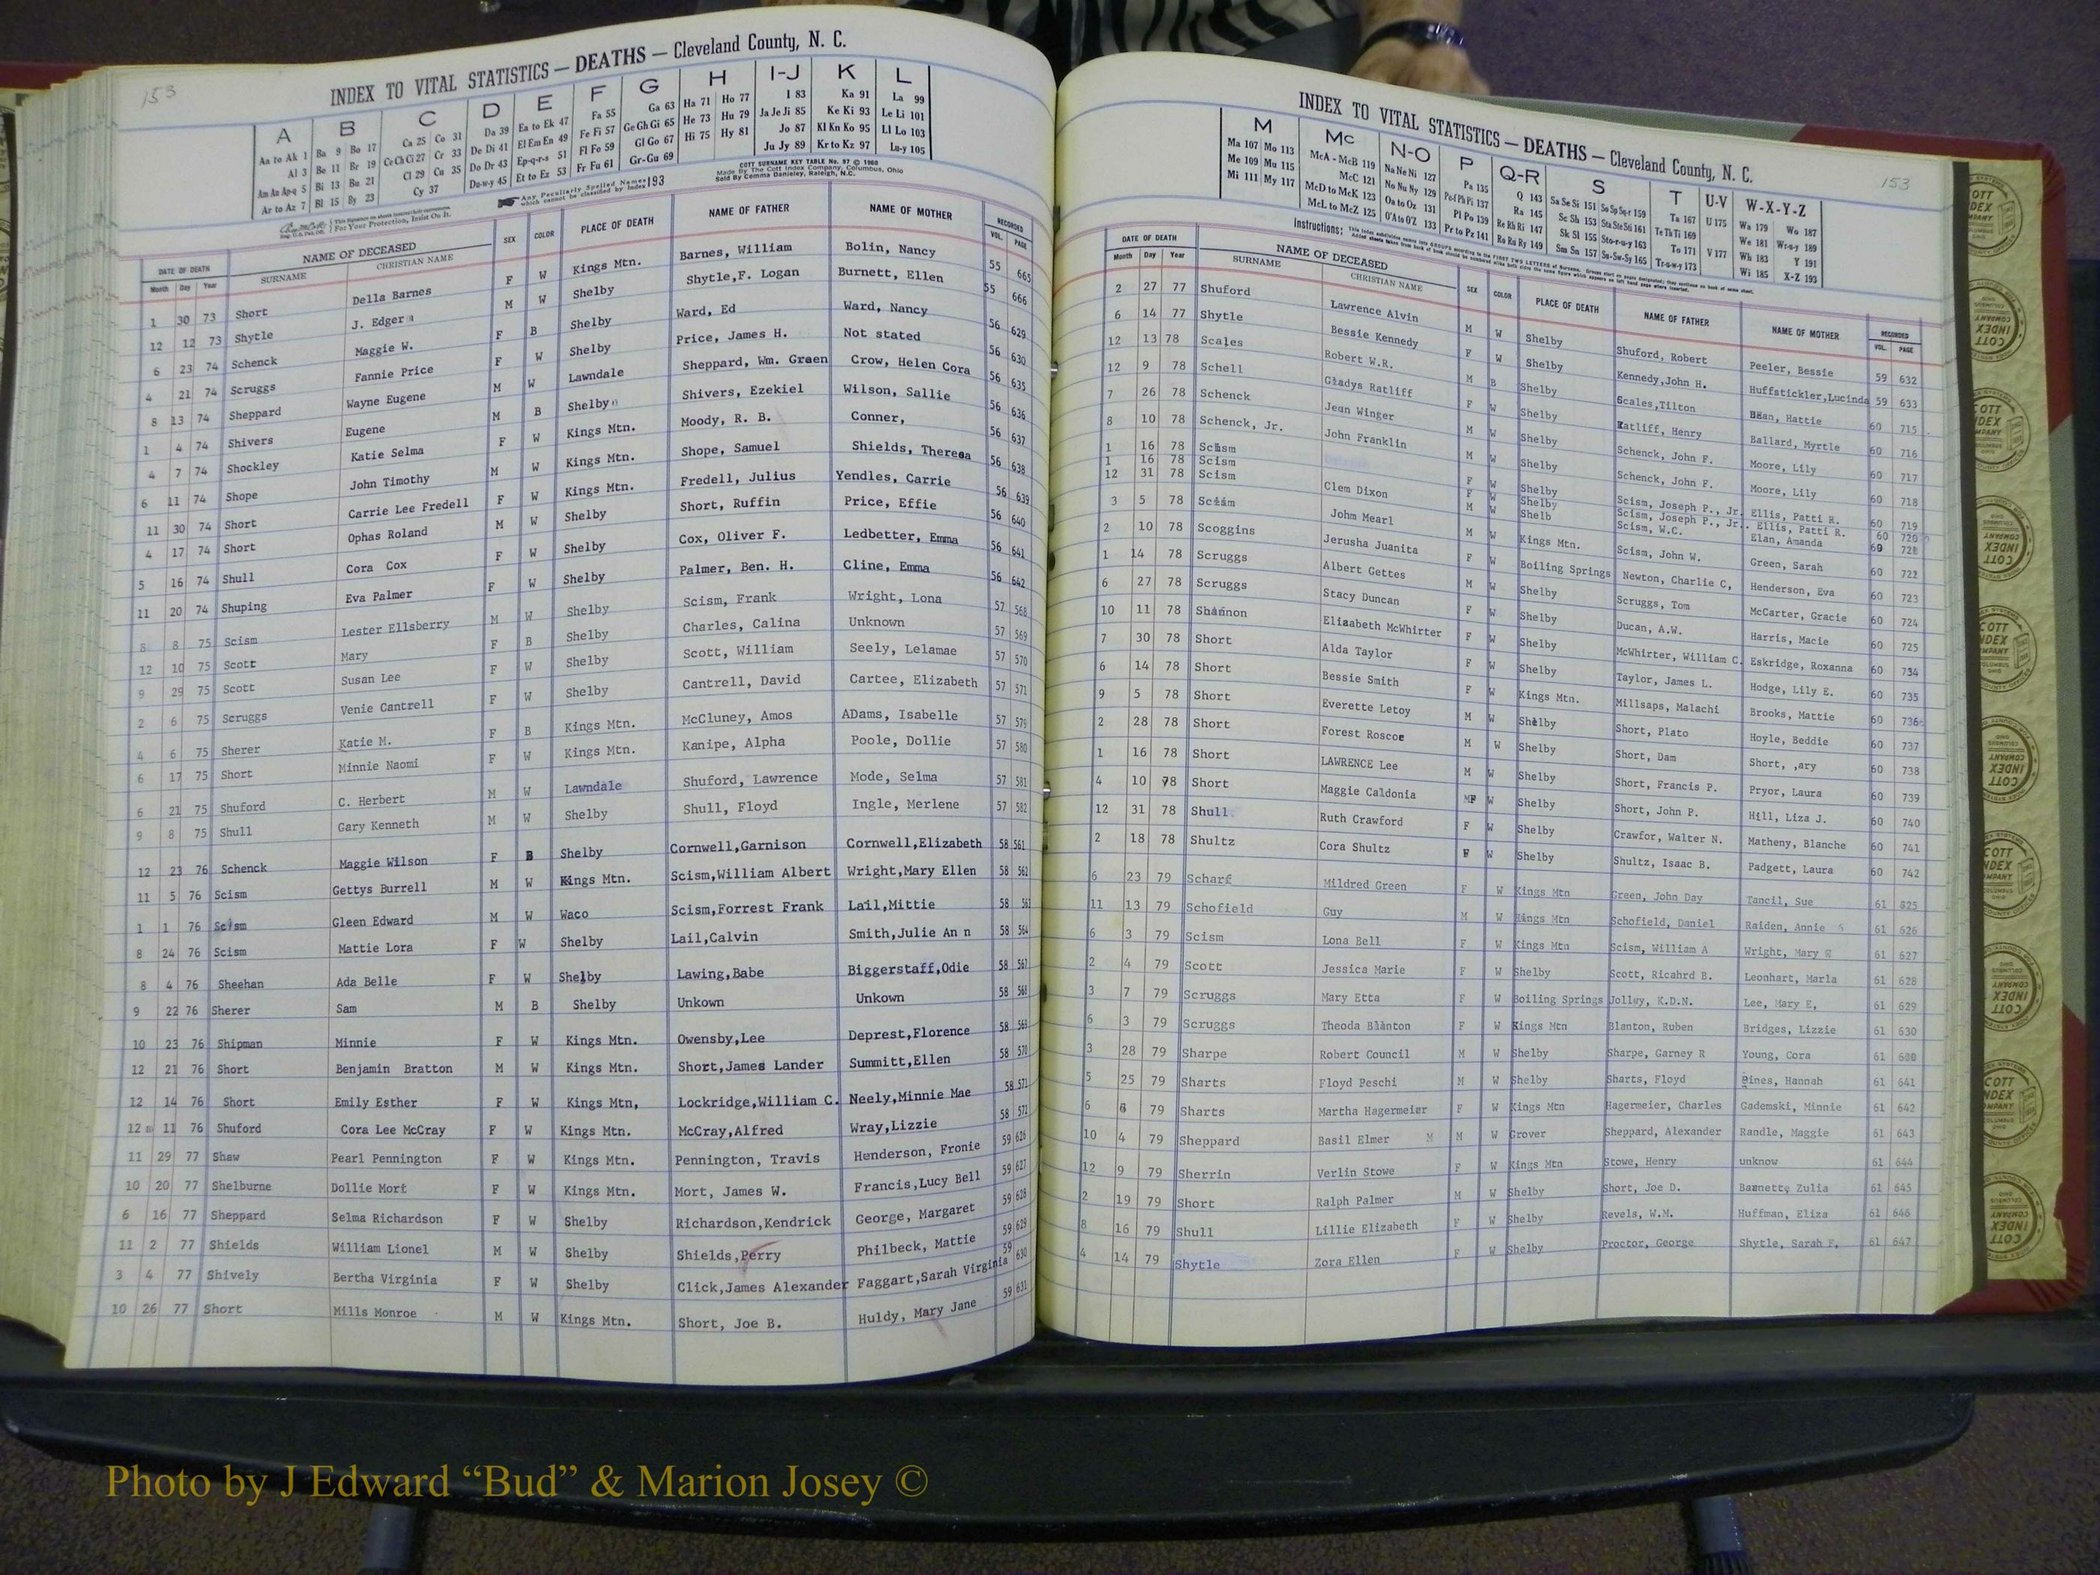 153
INDEX TO VITAL STATISTICS — DEATHS — Cleveland County, N. C.
A B C D E F G H I-J K L
Aa to Ak 1 Ba 9 Bo 17 Ca 25 Co 31 Da 39 Ea to Ek 47 Fa 55 Ga 63 Ha 71 Ho 77 I 83 Ka 91 La 99
Al 3 Be 11 Br 19 Ce Ch Ci 27 Cr 33 De Di 41 El Em En 49 Fe Fi 57 Ge Gh Gi 65 He 73 Hu 79 Ja Je Ji 85 Ke Ki 93 Le Li 101
Am An Ap-q 5 Bi 13 Bu 21 Cl 29 Cu 35 Do Dr 43 Ep-q-r-s 51 Fl Fo 59 Gl Go 67 Hi 75 Hy 81 Jo 87 Kl Kn Ko 95 Ll Lo 103
Ar to Az 7 Bl 15 By 23 Cy 37 Du-w-y 45 Et to Ez 53 Fr Fu 61 Gr-Gu 69 Ju Jy 89 Kr to Kz 97 Lu-y 105
For Your Protection, Insist On It.
Any Peculiarly Spelled Names which cannot be classified by Index 193
COTT SURNAME KEY TABLE No. 97 © 1960
Made By The Cott Index Company, Columbus, Ohio
Sold By Cemma Danieley, Raleigh, N.C.
DATE OF DEATH NAME OF DECEASED SEX COLOR PLACE OF DEATH NAME OF FATHER NAME OF MOTHER RECORDED
Month Day Year SURNAME CHRISTIAN NAME VOL. PAGE
1 30 73 Short Della Barnes F W Kings Mtn. Barnes, William Bolin, Nancy 55 665
12 12 73 Shytle J. Edger M W Shelby Shytle,F. Logan Burnett, Ellen 55 666
6 23 74 Schenck Maggie W. F B Shelby Ward, Ed Ward, Nancy 56 629
4 21 74 Scruggs Fannie Price F W Shelby Price, James H. Not stated 56 630
8 13 74 Sheppard Wayne Eugene M W Lawndale Sheppard, Wm. Green Crow, Helen Cora 56 635
1 4 74 Shivers Eugene M B Shelby Shivers, Ezekiel Wilson, Sallie 56 636
4 7 74 Shockley Katie Selma F W Kings Mtn. Moody, R. B. Conner, 56 637
6 11 74 Shope John Timothy M W Kings Mtn. Shope, Samuel Shields, Theresa 56 638
11 30 74 Short Carrie Lee Fredell F W Kings Mtn. Fredell, Julius Yendles, Carrie 56 639
4 17 74 Short Ophas Roland M W Shelby Short, Ruffin Price, Effie 56 640
5 16 74 Shull Cora Cox F W Shelby Cox, Oliver F. Ledbetter, Emma 56 641
11 20 74 Shuping Eva Palmer F W Shelby Palmer, Ben. H. Cline, Emma 56 642
8 8 75 Scism Lester Ellsberry M W Shelby Scism, Frank Wright, Lona 57 568
12 10 75 Scott Mary F B Shelby Charles, Calina Unknown 57 569
9 29 75 Scott Susan Lee F W Shelby Scott, William Seely, Lelamae 57 570
2 6 75 Scruggs Venie Cantrell F W Shelby Cantrell, David Cartee, Elizabeth 57 571
4 6 75 Sherer Katie M. F B Kings Mtn. McCluney, Amos ADams, Isabelle 57 579
6 17 75 Short Minnie Naomi F W Kings Mtn. Kanipe, Alpha Poole, Dollie 57 580
6 21 75 Shuford C. Herbert M W Lawndale Shuford, Lawrence Mode, Selma 57 581
9 8 75 Shull Gary Kenneth M W Shelby Shull, Floyd Ingle, Merlene 57 582
12 23 76 Schenck Maggie Wilson F B Shelby Cornwell,Garnison Cornwell,Elizabeth 58 561
11 5 76 Scism Gettys Burrell M W Kings Mtn. Scism,William Albert Wright,Mary Ellen 58 562
1 1 76 Scism Gleen Edward M W Waco Scism,Forrest Frank Lail,Mittie 58 563
8 24 76 Scism Mattie Lora F W Shelby Lail,Calvin Smith,Julie An n 58 564
8 4 76 Sheehan Ada Belle F W Shelby Lawing,Babe Biggerstaff,Odie 58 567
9 22 76 Sherer Sam M B Shelby Unkown Unkown 58 568
10 23 76 Shipman Minnie F W Kings Mtn. Owensby,Lee Deprest,Florence 58 569
12 21 76 Short Benjamin Bratton M W Kings Mtn. Short,James Lander Summitt,Ellen 58 570
12 14 76 Short Emily Esther F W Kings Mtn, Lockridge,William C. Neely,Minnie Mae 58 571
12 11 76 Shuford Cora Lee McCray F W Kings Mtn. McCray,Alfred Wray,Lizzie 58 572
11 29 77 Shaw Pearl Pennington F W Kings Mtn. Pennington, Travis Henderson, Fronie 59 626
10 20 77 Shelburne Dollie Mort F W Kings Mtn. Mort, James W. Francis,Lucy Bell 59 627
6 16 77 Sheppard Selma Richardson F W Shelby Richardson,Kendrick George, Margaret 59 628
11 2 77 Shields William Lionel M W Shelby Shields,Perry Philbeck, Mattie 59 629
3 4 77 Shively Bertha Virginia F W Shelby Click,James Alexander Faggart,Sarah Virginia 59 630
10 26 77 Short Mills Monroe M W Kings Mtn. Short, Joe B. Huldy, Mary Jane 59 631
INDEX TO VITAL STATISTICS — DEATHS — Cleveland County, N. C.
153
M Mc N-O P Q-R S T U-V W-X-Y-Z
Ma 107 Mo 113 McA - McB 119 Na Ne Ni 127 Pa 135 Q 143 Sa Se Si 151 So Sp Sq-r 159 Ta 167 U 175 Wa 179 Wo 187
Me 109 Mu 115 McC 121 No Nu Ny 129 Pe-f Ph Pi 137 Ra 145 Sc Sh 153 Sta Ste Sti 161 Te Th Ti 169 We 181 Wr-u-y 189
Mi 111 My 117 McD to McK 123 Oa to Oz 131 Pl Po 139 Re Rh Ri 147 Sk Sl 155 Sto-r-u-y 163 To 171 V 177 Wh 183 Y 191
McL to McZ 125 O'A to O'Z 133 Pr to Pz 141 Ro Ru Ry 149 Sm Sn 157 Su-Sw-Sy 165 Tr-u-w-y 173 Wi 185 X-Z 193
Instructions:
DATE OF DEATH NAME OF DECEASED SEX COLOR PLACE OF DEATH NAME OF FATHER NAME OF MOTHER RECORDED
Month Day Year SURNAME CHRISTIAN NAME VOL. PAGE
2 27 77 Shuford Lawrence Alvin M W Shelby Shuford, Robert Peeler, Bessie 59 632
6 14 77 Shytle Bessie Kennedy F W Shelby Kennedy,John H. Huffstickler,Lucinda 59 633
12 13 78 Scales Robert W.R. M B Shelby Scales,Tilton Bean, Hattie 60 715
12 9 78 Schell Gladys Ratliff F W Shelby Ratliff, Henry Ballard, Myrtle 60 716
7 26 78 Schenck Jean Winger M W Shelby Schenck, John F. Moore, Lily 60 717
8 10 78 Schenck, Jr. John Franklin M W Shelby Schenck, John F. Moore, Lily 60 718
1 16 78 Scism F W Shelby Scism, Joseph P., Jr. Ellis, Patti R. 60 719
1 16 78 Scism F W Shelby Scism, Joseph P., Jr.. Ellis, Patti R. 60 720
12 31 78 Scism Clem Dixon M W Shelb Scism, W.C. Elan, Amanda 60 721
3 5 78 Scism Johm Mearl M W Kings Mtn. Scism, John W. Green, Sarah 60 722
2 10 78 Scoggins Jerusha Juanita F W Boiling Springs Newton, Charlie C, Henderson, Eva 60 723
1 14 78 Scruggs Albert Gettes M W Shelby Scruggs, Tom McCarter, Gracie 60 724
6 27 78 Scruggs Stacy Duncan F W Shelby Ducan, A.W. Harris, Macie 60 725
10 11 78 Shannon Elizabeth McWhirter F W Shelby McWhirter, William C. Eskridge, Roxanna 60 734
7 30 78 Short Alda Taylor F W Shelby Taylor, James L. Hodge, Lily E. 60 735
6 14 78 Short Bessie Smith F W Kings Mtn. Millsaps, Malachi Brooks, Mattie 60 736
9 5 78 Short Everette Letoy M W Shelby Short, Plato Hoyle, Beddie 60 737
2 28 78 Short Forest Roscoe M W Shelby Short, Dam Short, ,ary 60 738
1 16 78 Short LAWRENCE Lee M W Shelby Short, Francis P. Pryor, Laura 60 739
4 10 78 Short Maggie Caldonia F W Shelby Short, John P. Hill, Liza J. 60 740
12 31 78 Shull Ruth Crawford F W Shelby Crawfor, Walter N. Matheny, Blanche 60 741
2 18 78 Shultz Cora Shultz F W Shelby Shultz, Isaac B. Padgett, Laura 60 742
6 23 79 Scharf Mildred Green F W Kings Mtn Green, John Day Tancil, Sue 61 625
11 13 79 Schofield Guy M W Kings Mtn Schofield, Daniel Raiden, Annie 61 626
6 3 79 Scism Lona Bell F W Kings Mtn Scism, William A Wright, Mary 61 627
2 4 79 Scott Jessica Marie F W Shelby Scott, Ricahrd B. Leonhart, Marla 61 628
3 7 79 Scruggs Mary Etta F W Boiling Springs Jolley, K.D.N. Lee, Mary E, 61 629
6 3 79 Scruggs Theoda Blanton F W Kings Mtn Blanton, Ruben Bridges, Lizzie 61 630
3 28 79 Sharpe Robert Council M W Shelby Sharpe, Garney R Young, Cora 61
5 25 79 Sharts Floyd Peschi M W Shelby Sharts, Floyd Hannah 61 641
6 6 79 Sharts Martha Hagermeier F W Kings Mtn Hagermeier, Charles Gademski, Minnie 61 642
10 4 79 Sheppard Basil Elmer M M W Grover Sheppard, Alexander Randle, Maggie 61 643
12 9 79 Sherrin Verlin Stowe F W Kings Mtn Stowe, Henry unknow 61 644
2 19 79 Short Ralph Palmer M W Shelby Short, Joe D. Barnette Zulia 61 645
8 16 79 Shull Lillie Elizabeth F W Shelby Revels, W.M. Huffman, Eliza 61 646
4 14 79 Shytle Zora Ellen F W Shelby Proctor, George Shytle, Sarah F, 61 647
Photo by J Edward “Bud” & Marion Josey ©